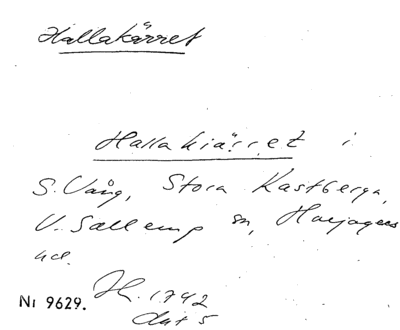 Hallakärret
Hallakiärret i
S. Vång, Stora Kastberga,
V. Sallerup sn, Harjagers
hd.
Jh. 1742
Akt 5
Nr 9629.